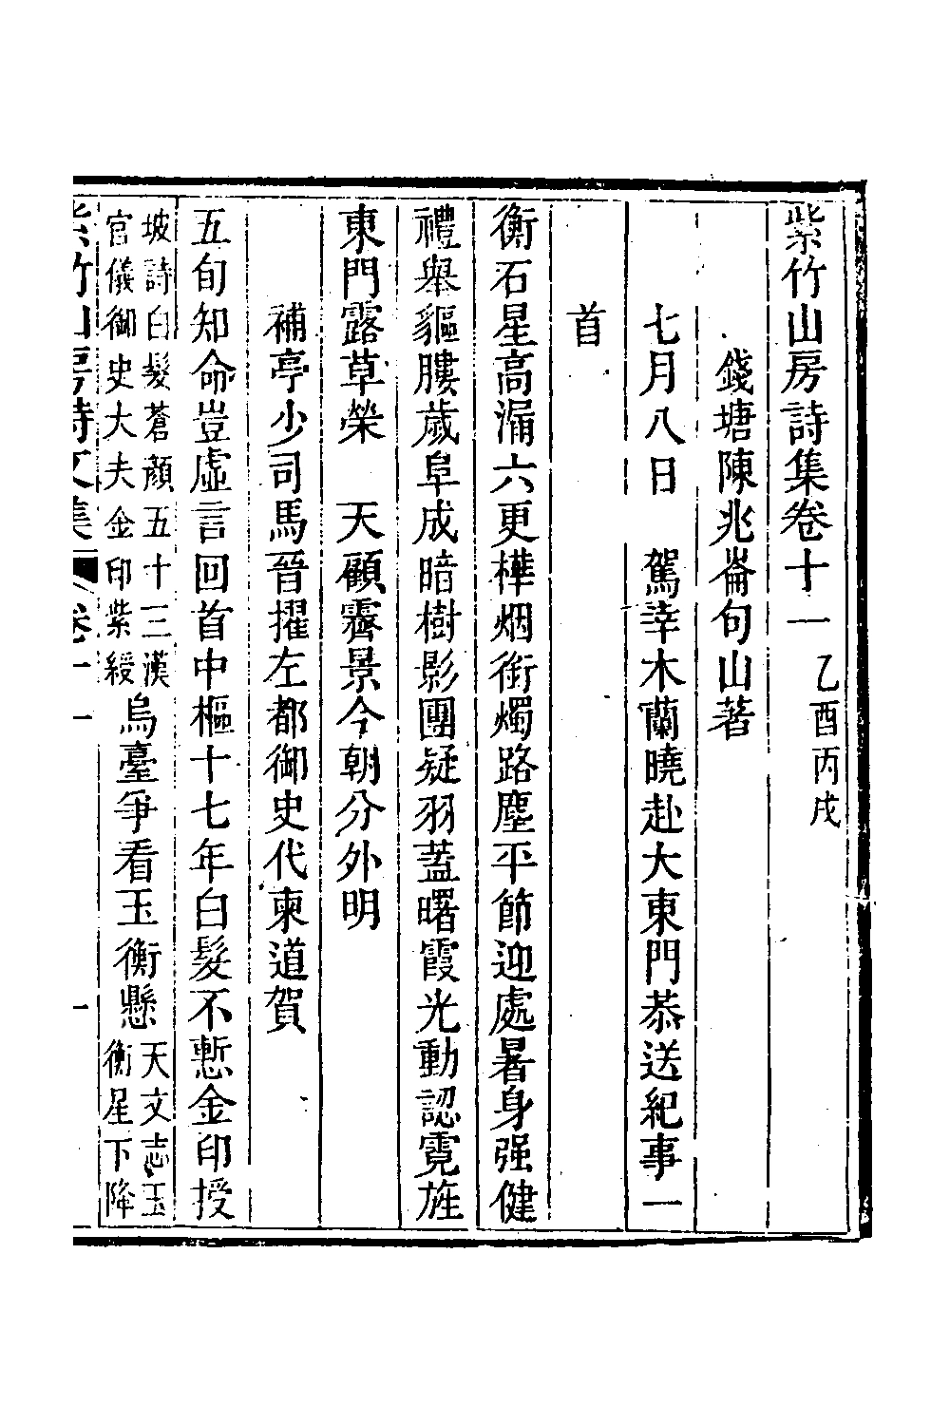 紫竹山房詩集卷十一 乙酉丙戌
錢塘陳兆崙句山著
七月八日 駕幸木蘭曉赴大東門恭送紀事一
首
衡石星高漏六更樺烟銜燭路塵平節迎處暑身强健
禮舉貙膢歲阜成暗樹影團疑羽蓋曙霞光動認霓旌
東門露草榮 天顧霽景今朝分外明
補亭少司馬晉擢左都御史代柬道賀
五旬知命豈虛言回首中樞十七年白髮不慙金印授
坡詩白髮蒼顔五十三漢
官儀御史大夫金印紫綬
烏臺爭看玉衡懸
天文志玉
衡星下降
紫竹山房詩文集 卷十一 一